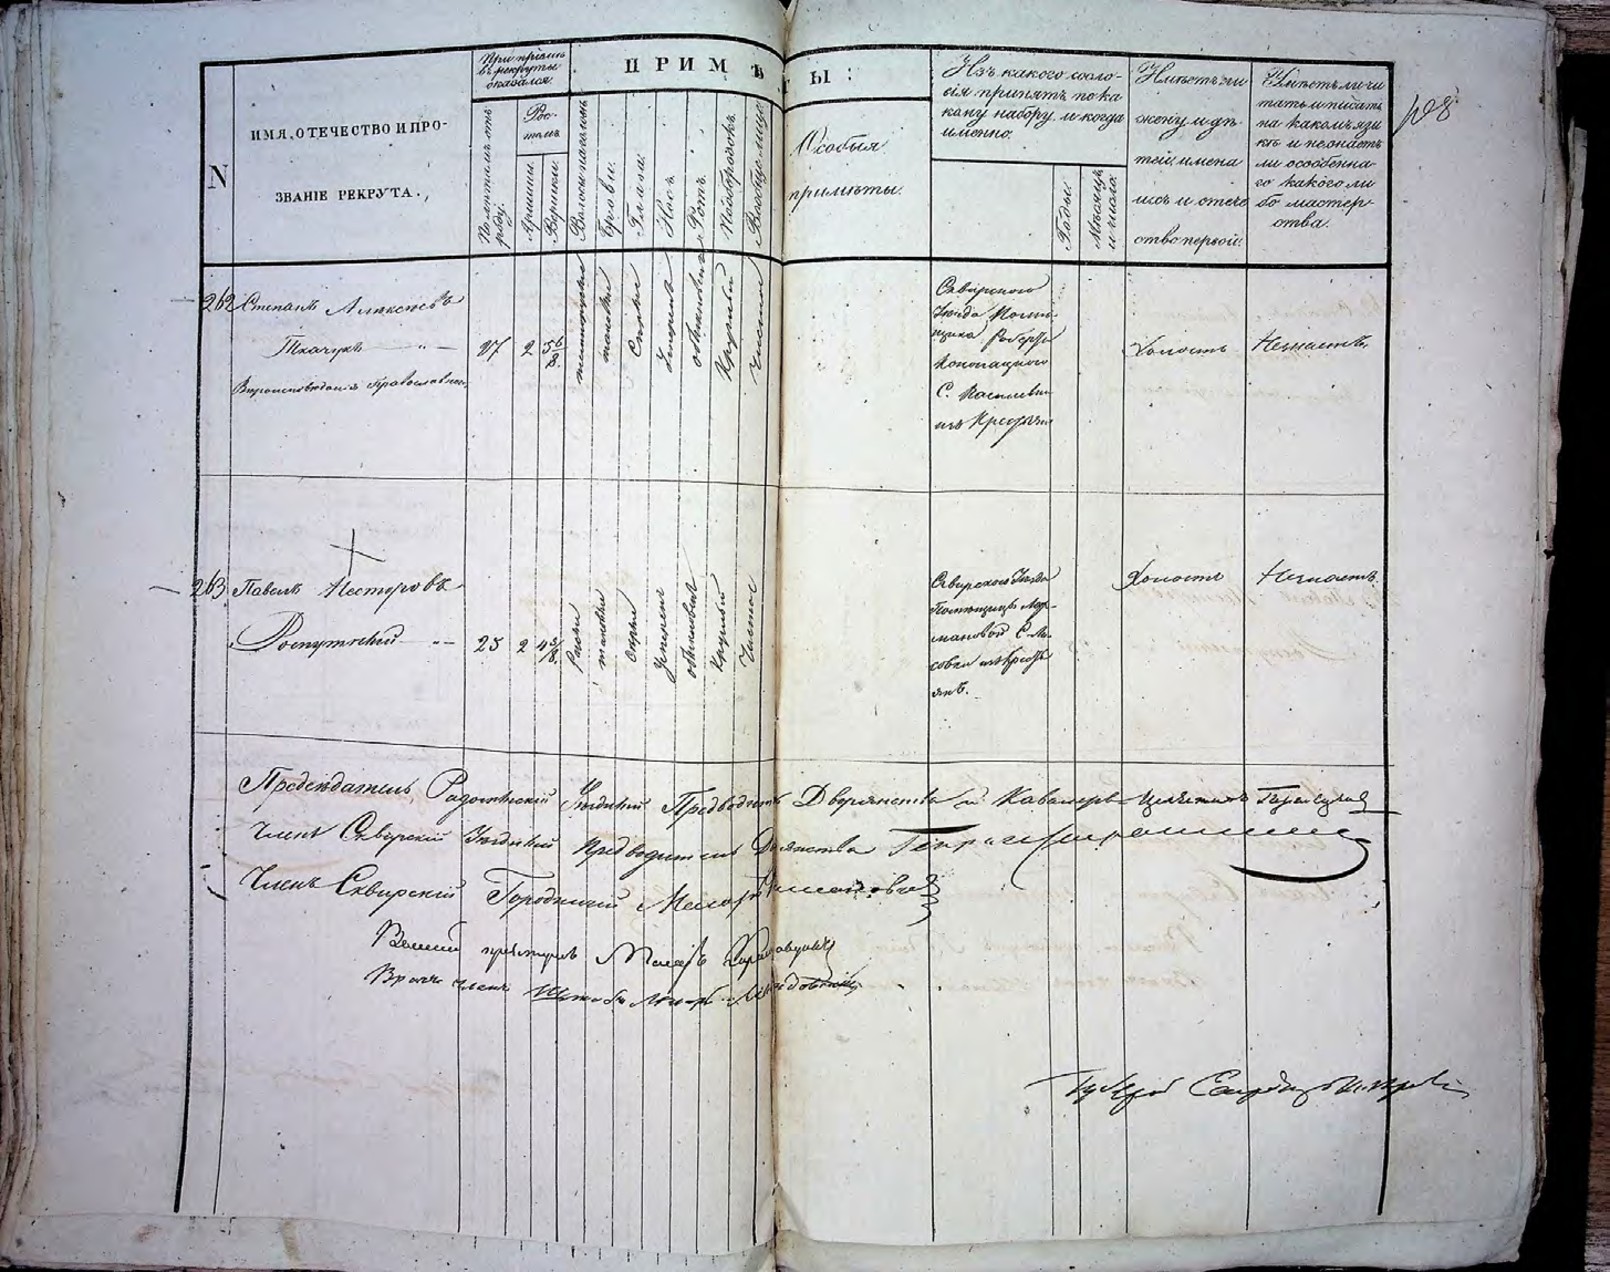 108
N
ИМЯ, ОТЕЧЕСТВО И ПРО-
ЗВАНІЕ РЕКРУТА.
При пріёмѣ
въ рекруты
оказался.
По лѣтамъ отъ
роду.
Рос-
томъ
Аршины
Вершки.
ПРИМѢ
ТЫ:
Волосы на головѣ
Брови.
Глаза.
Носъ.
Ротъ.
Подбородокъ.
Вообще лице
Особыя
примѣты.
Изъ какого сосло-
вія принятъ по ка
кому набору и когда
именно.
Годы
Мѣсяцъ
и число.
Имѣетъ ли
жену и дѣ-
тей, имена
ихъ и отече
ство первой.
Умѣетъ ли чи
тать и писать
на какомъ язы
кѣ и не знаетъ
ли особенна-
го какого ли
бо мастер-
ства.
262
Степанъ Алексѣевъ
Ткачукъ
Вѣроисповѣданія Православнаго
27
2
5 6/8
Сѣрые
Умѣренъ
Круглый
Чистое
Сквирскаго
Уѣзда Помѣ-
щика
С. Василевки
изъ Крестьянъ
Холостъ
Незнаетъ
263
Павелъ Несторовъ
25
2
4 5/8
Русые
таковые
Сѣрые
Умѣренъ
обыкновенъ
Круглый
Чистое
Сквирскаго Уѣзда
Помѣщицы
С.
изъ Кресть
янъ.
Холостъ
Незнаетъ
Предсѣдатель, Радомысльскій Уѣздный Предводитель Дворянства и Кавалеръ
Членъ Сквирскій Уѣздный Предводитель Дворянства Генрих
Членъ Сквирскій Городничій Маіоръ
Военный пріемщикъ Маіоръ
Врачъ членъ Штабъ Лекарь